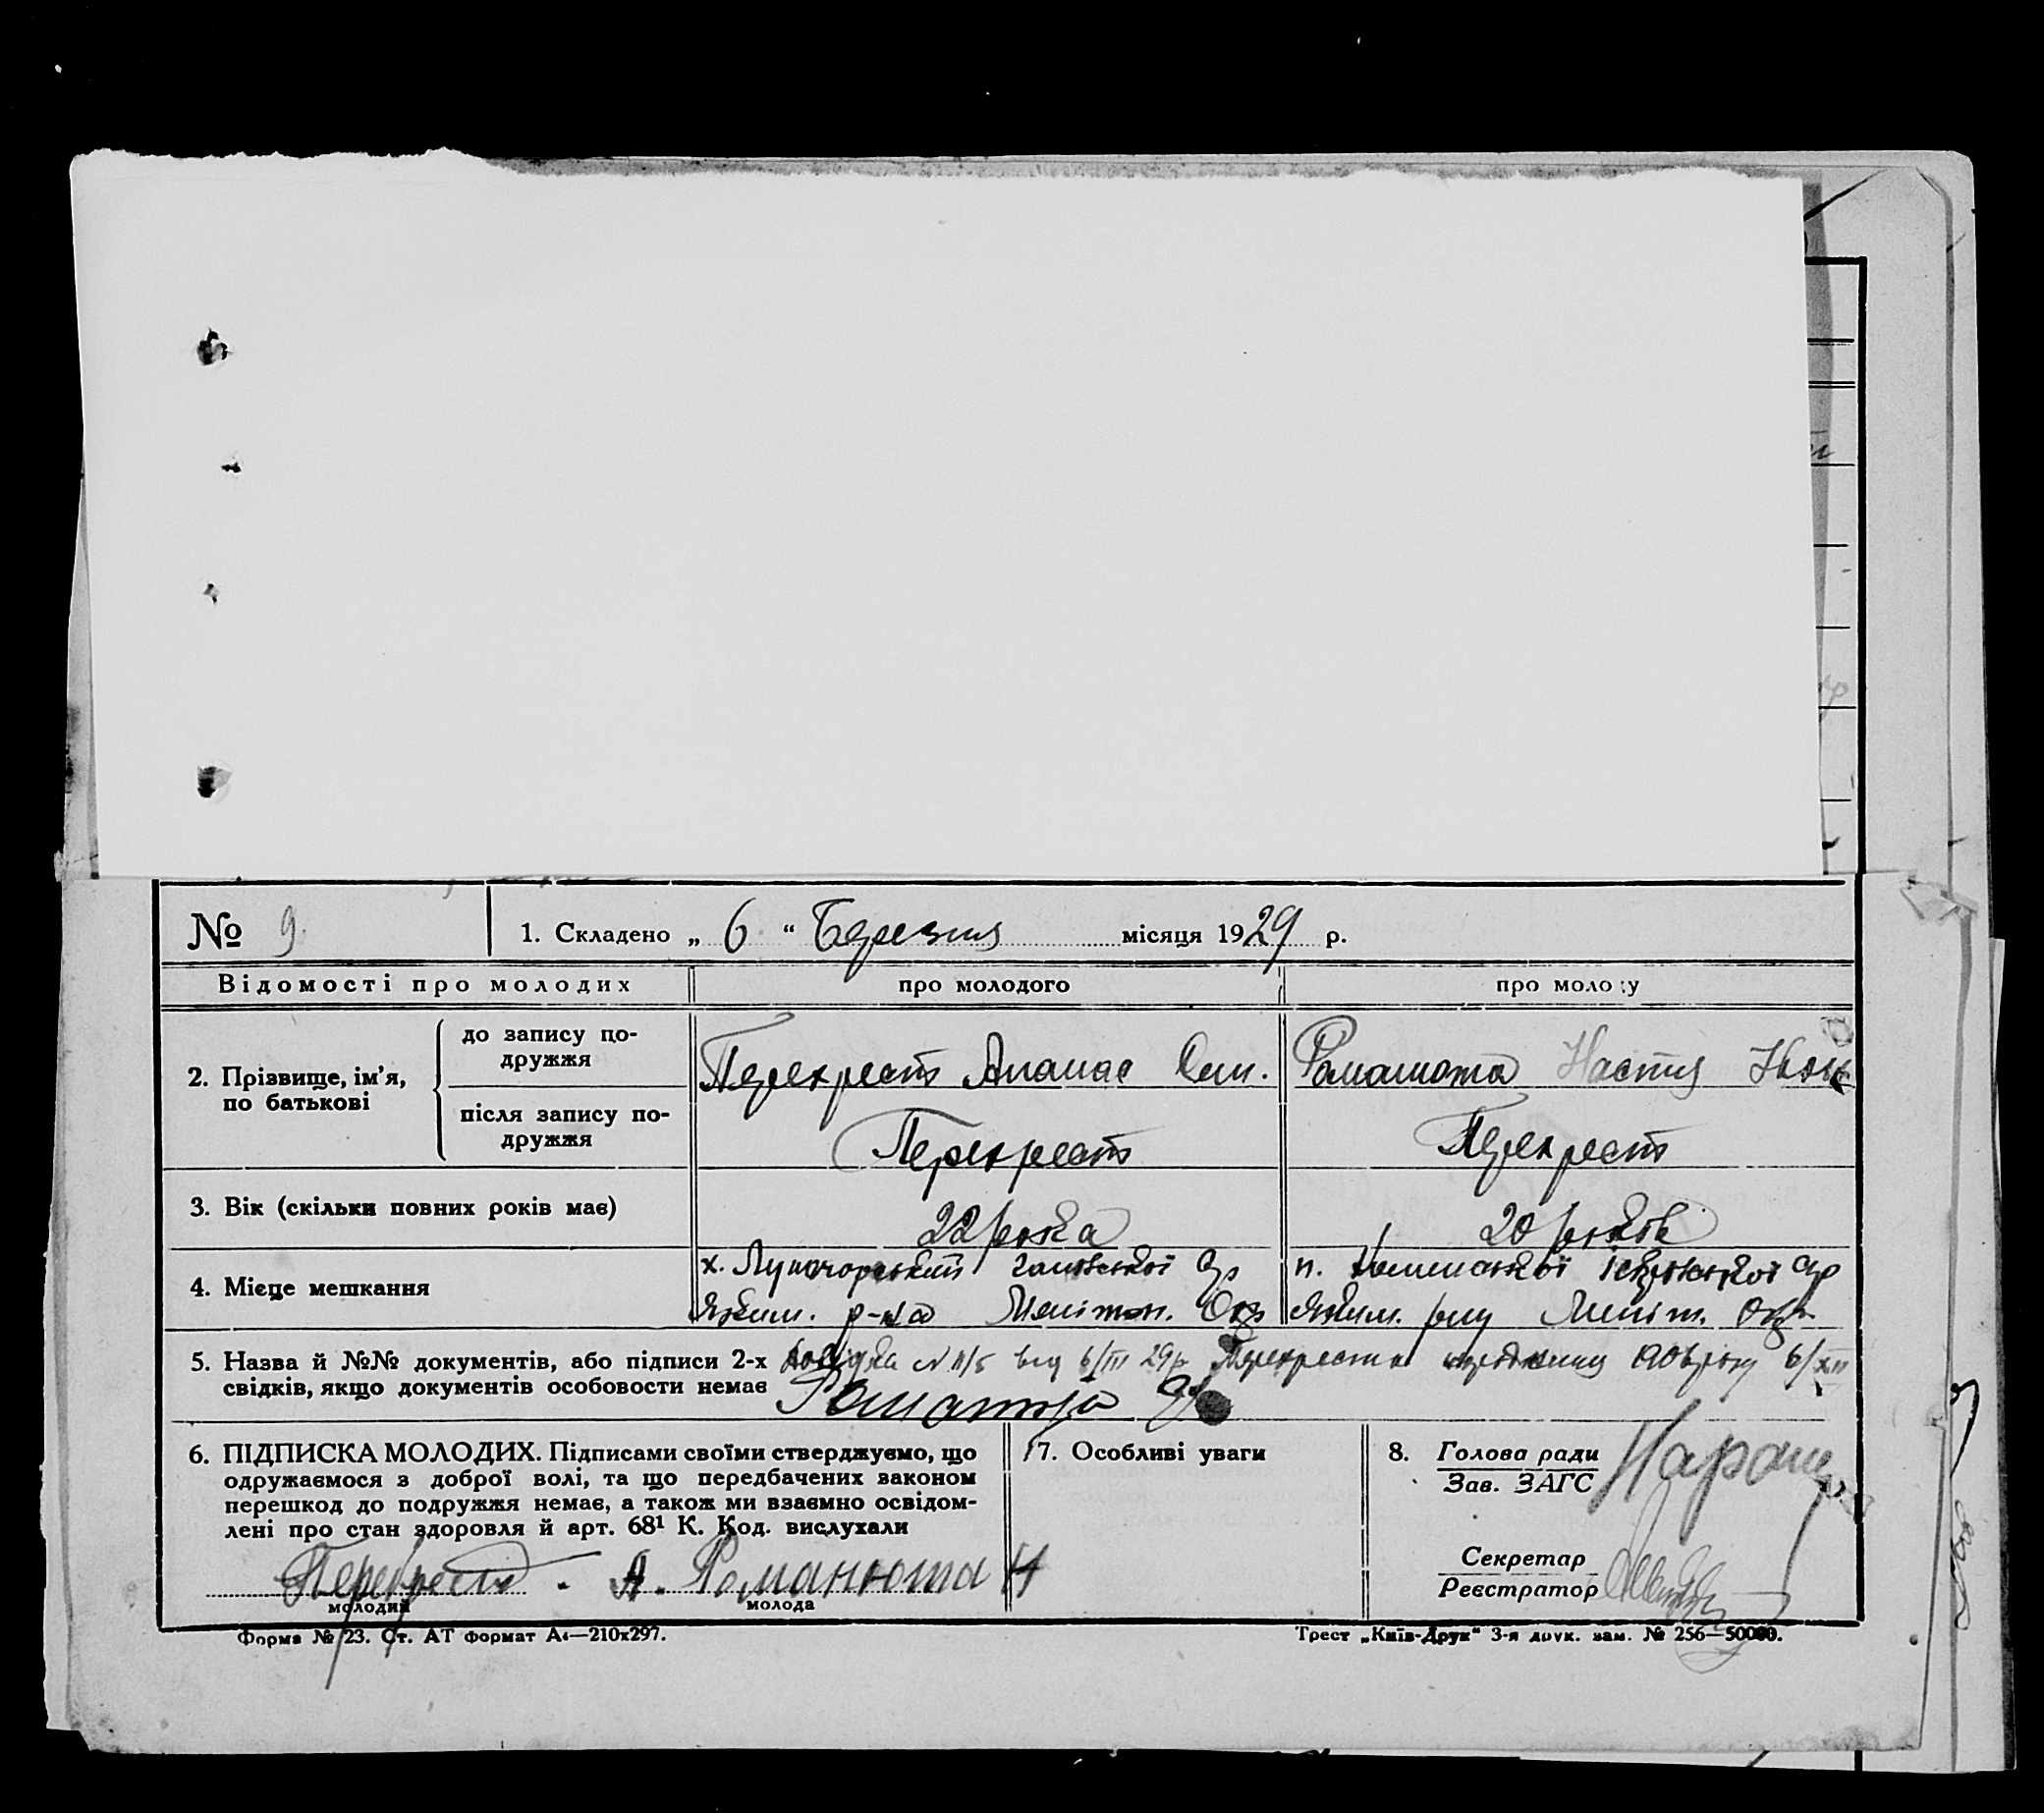 № 9 1. Складено „ 6 “ Березня місяця 1929 р.
Відомості про молодих про молодого про моло у
2. Прізвище, ім’я, по батькові
до запису по-
дружжя
Перехрест Апанас Романюта Настя
після запису по-
дружжя
Перехрест Перехрест
3. Вік (скільки повних років має) 22 рока 20 років
4. Місце мешкання
х. Луначорський Ср п. Ср
Яким. р-на Мелітоп. Окр Яким. рну Меліт. Окр
5. Назва й №№ документів, або підписи 2-х Довідка N 11/5 від 6/III 29р Перехреста 6/XII
свідків, якщо документів особовости немає
6. ПІДПИСКА МОЛОДИХ. Підписами своїми стверджуємо, що
одружаємося з доброї волі, та що передбачених законом
перешкод до подружжя немає, а також ми взаємно освідом-
лені про стан здоровля й арт. 68¹ К. Код. вислухали
Перехрест . А. Романюта Н
молодий молода
7. Особливі уваги
8. Голова ради
Зав. ЗАГС
Секретар
Реєстратор
Форма № 23. Ст. АТ формат А₄—210х297. Трест „Київ-Друк“ 3-я друк. зам. № 256—50000.